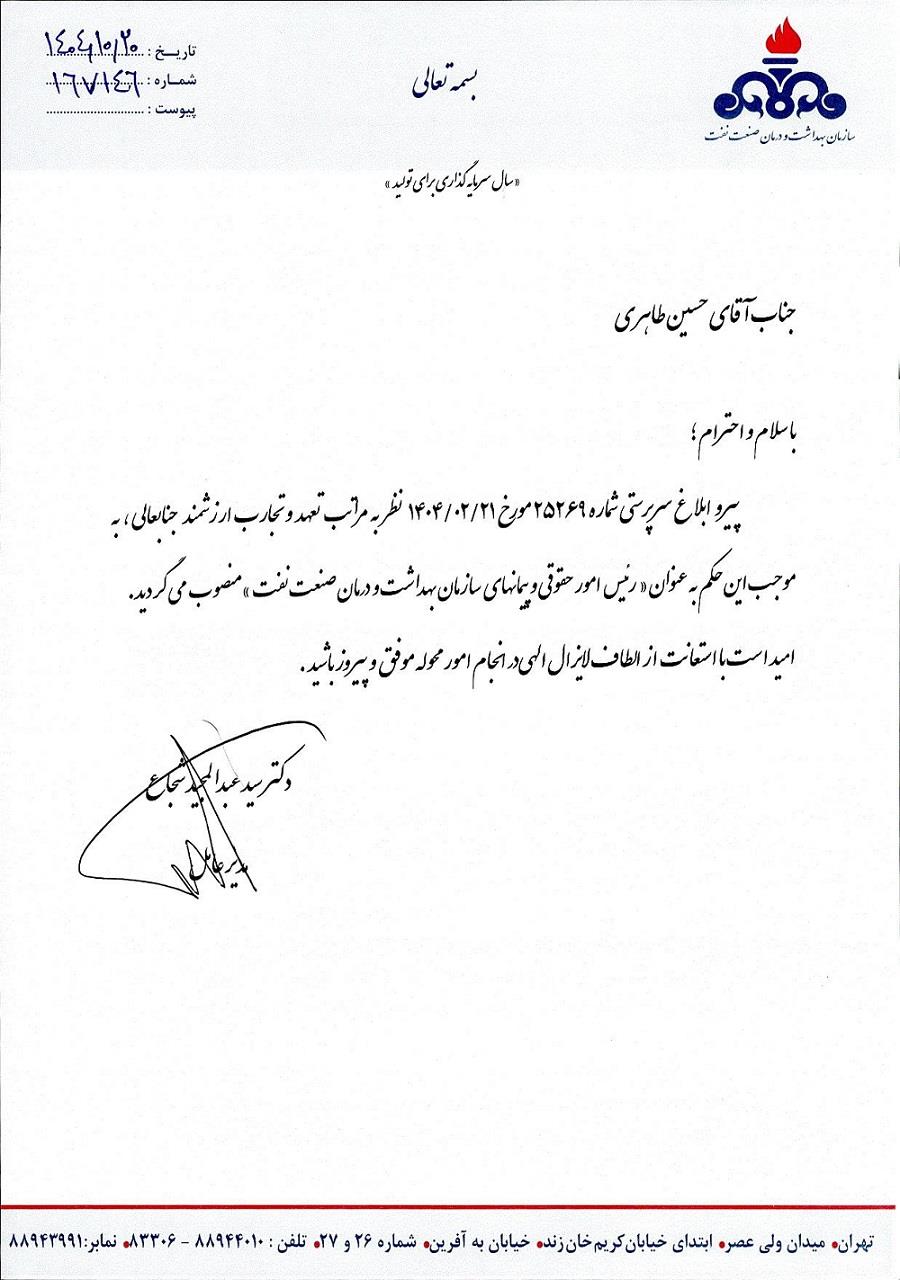 تاریخ : ۱٤۰٤/۱۰/۲۰
شماره : ۱٦۷۱٤٦
پیوست : ............................
بسمه تعالی
سازمان بهداشت و درمان صنعت نفت
«سال سرمایه گذاری برای تولید»
جناب آقای حسین طاهری
با سلام و احترام ؛
پیرو ابلاغ سرپرستی شماره ۲۵۲۶۹ مورخ ۱۴۰۴/۰۲/۲۱ نظر به مراتب تعهد و تجارب ارزشمند جنابعالی ، به
موجب این حکم به عنوان « رئیس امور حقوقی و پیمانهای سازمان بهداشت و درمان صنعت نفت » منصوب می گردید.
امید است با استعانت از الطاف لایزال الهی در انجام امور محوله موفق و پیروز باشید .
دکتر سید عبدالمجید شجاع
مدیر عامل
تهران • میدان ولی عصر • ابتدای خیابان کریم خان زند • خیابان به آفرین • شماره ۲۶ و ۲۷ • تلفن : ۸۸۹۴۴۰۱۰ - ۸۳۳۰۶ • نمابر: ۸۸۹۴۳۹۹۱